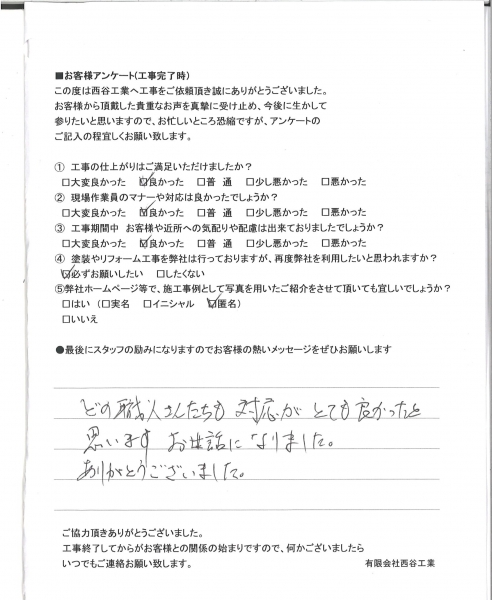 ■お客様アンケート(工事完了時)
この度は西谷工業へ工事をご依頼頂き誠にありがとうございました。
お客様から頂戴した貴重なお声を真摯に受け止め、今後に生かして
参りたいと思いますので、お忙しいところ恐縮ですが、アンケートの
ご記入の程宜しくお願い致します。
① 工事の仕上がりはご満足いただけましたか？
□大変良かった ☑良かった □普 通 □少し悪かった □悪かった
② 現場作業員のマナーや対応は良かったでしょうか？
□大変良かった ☑良かった □普 通 □少し悪かった □悪かった
③ 工事期間中 お客様や近所への気配りや配慮は出来ておりましたでしょうか？
□大変良かった ☑良かった □普 通 □少し悪かった □悪かった
④ 塗装やリフォーム工事を弊社は行っておりますが、再度弊社を利用したいと思われますか？
☑必ずお願いしたい □したくない
⑤弊社ホームページ等で、施工事例として写真を用いたご紹介をさせて頂いても宜しいでしょうか？
□はい (□実名 □イニシャル ☑匿名)
□いいえ
●最後にスタッフの励みになりますのでお客様の熱いメッセージをぜひお願いします
どの職人さんたちも 対応が とても良かったと
思います お世話になりました。
ありがとうございました。
ご協力頂きありがとうございました。
工事終了してからがお客様との関係の始まりですので、何かございましたら
いつでもご連絡お願い致します。 有限会社西谷工業